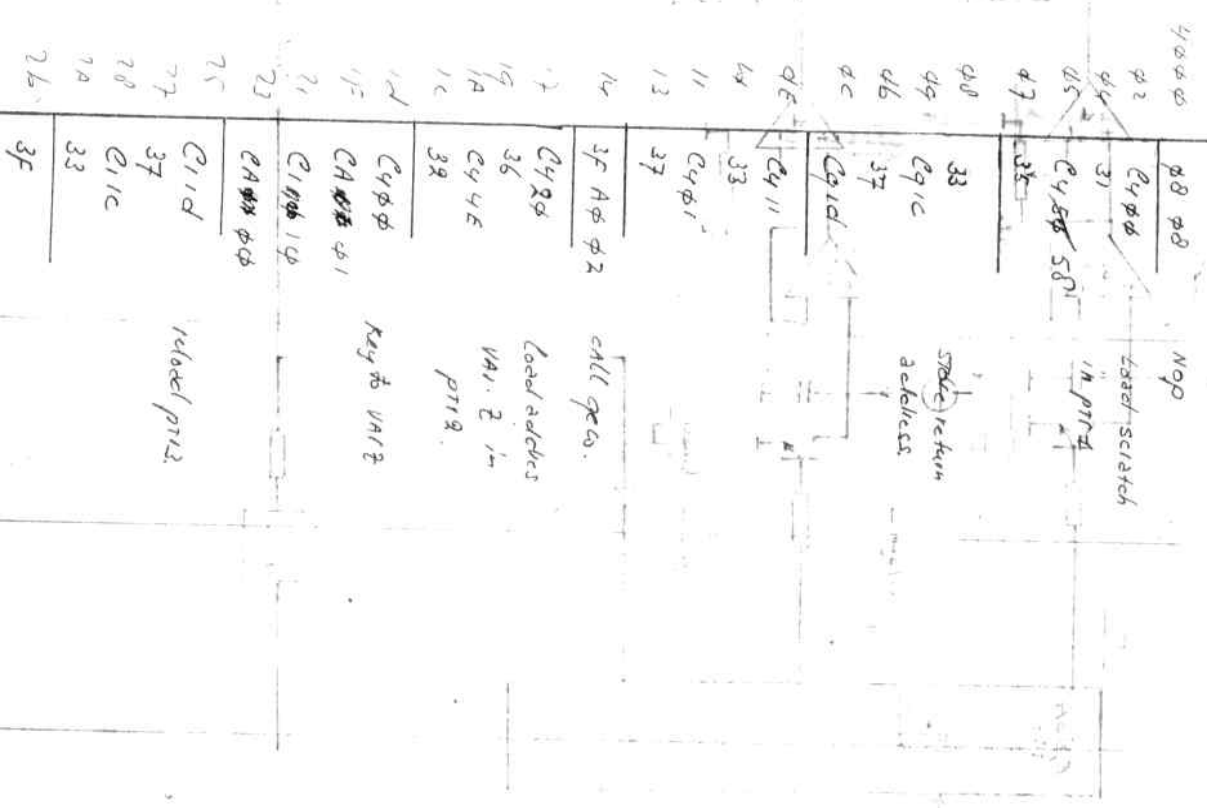 4ØØØ Ø8 Ø8 NOP
Ø2 C4ØØ Load scratch
Ø4 31 in PTR1
Ø5 C4 58
Ø7 35
Ø8 33 store return
Ø9 C91C address.
Øb 37
ØC C91d
ØE C411
33
11 C4Ø1
13 37
14 3F AØ Ø2 CALL geco.
17 C42Ø Load address
19 36 VAR. 2 in
1A C44E PTR2.
1C 32
1d C4ØØ
1F CA Ø1 Key to VAR2
21 C1 1Ø
23 CA ØØ
25 C11d reload ptr3.
27 37
28 C11C
2A 33
2b 3F